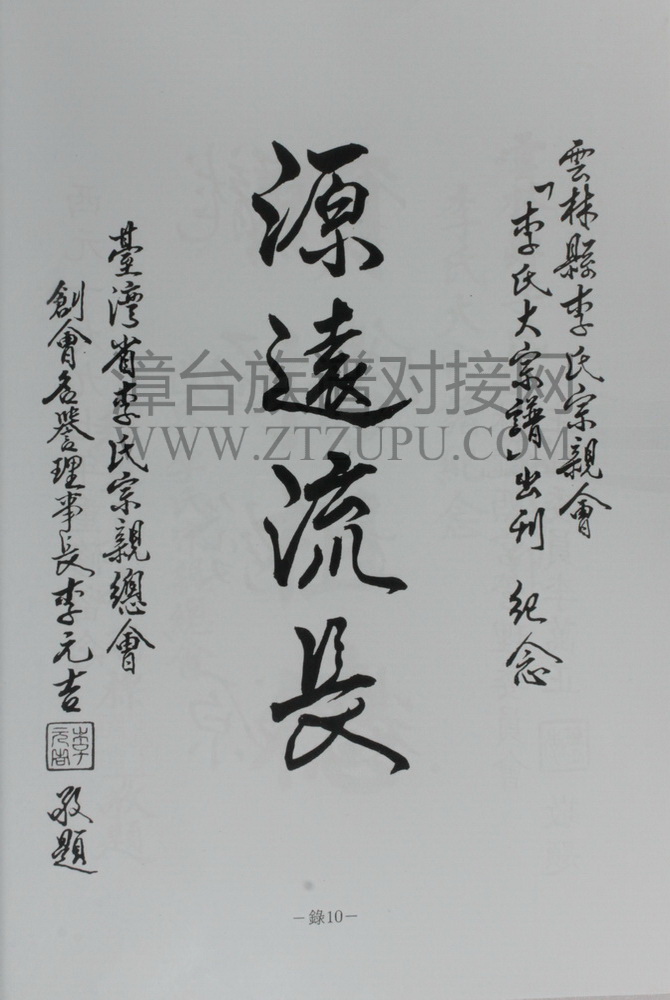 雲林縣李氏宗親會
「李氏大宗譜」出刊 紀念
源遠流長
臺灣省李氏宗親總會
創會名譽理事長李元吉
李元吉
敬題
漳台族谱对接网
WWW.ZTZUPU.COM
－錄10－